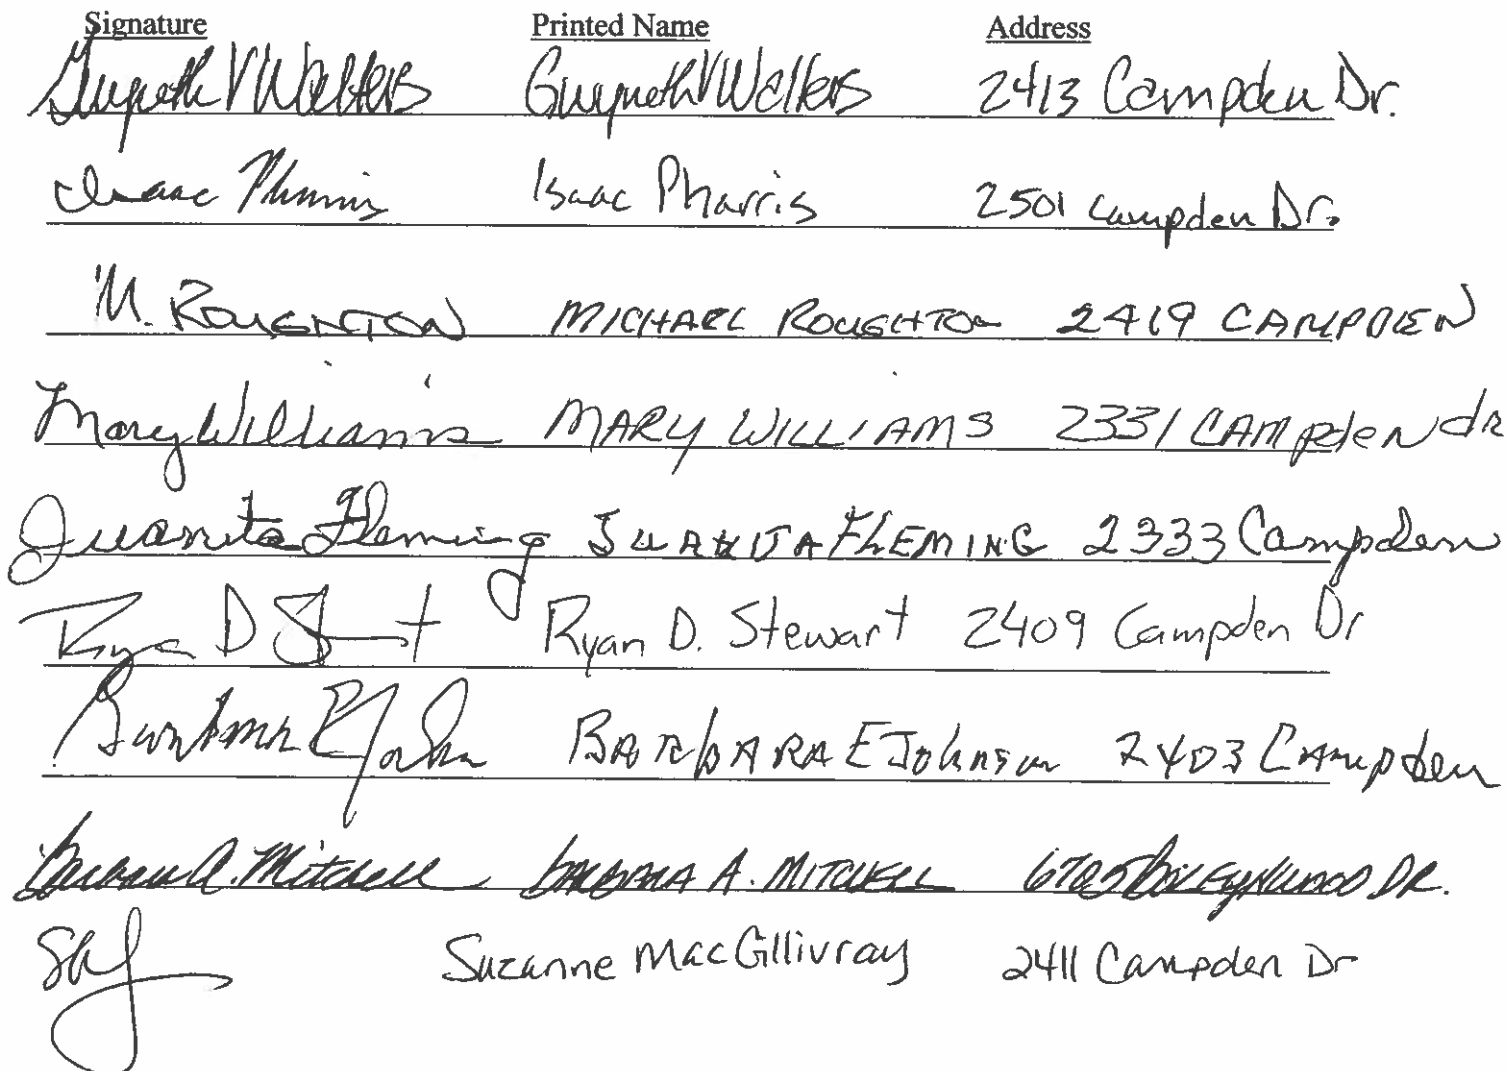 Signature Printed Name Address
Gwyneth V Walters Gwyneth V Walters 2413 Campden Dr.
Isaac Pharris Isaac Pharris 2501 Campden Dr.
M. ROUGHTON MICHAEL ROUGHTON 2419 CAMPDEN
Mary Williams MARY WILLIAMS 2331 CAMPden dr
Juanita Fleming JUANITA FLEMING 2333 Campden
Ryan D Ryan D. Stewart 2409 Campden Dr
Barbara E Johnson BARbARA E Johnson 2403 CAmpden
Barbara A. Mitchell BARBARA A. MITCHELL DR.
Suzanne MacGillivray 2411 Campden Dr